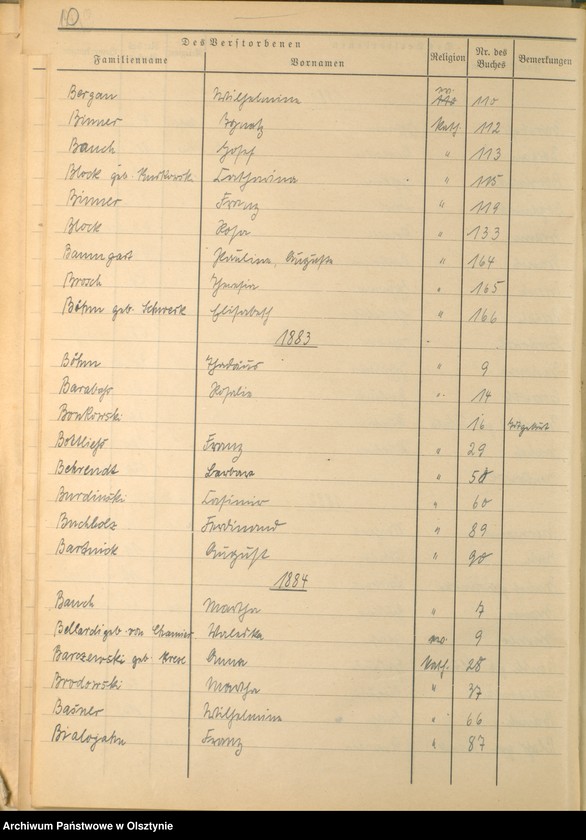 10
Des Verstorbenen
Familienname Vornamen Religion Nr. des Buches Bemerkungen
Bergan Wilhelmine ev. 110
Binner Ignatz Kath. 112
Bauch Josef " 113
Block geb. Catharina " 115
Binner Franz " 119
Block Rosa " 133
Baumgart Pauline, Auguste " 164
Brosch " 165
Böhm geb. Schwerk Elisabeth " 166
1883
Böhm Thadäus " 9
Rosalie " 14
Bonkowski 16 Totgeburt
Franz " 29
Behrendt Barbara " 58
Burdinski Casimir " 60
Buchholz Ferdinand " 89
Bartnick August " 90
1884
Bauch Martha " 7
Bellardi geb. von Chamier Waleska ev. 9
Barczewski geb. Anna Kath. 28
Brodowski Martha " 37
Basner Wilhelmine " 66
Franz " 87
Archiwum Państwowe w Olsztynie